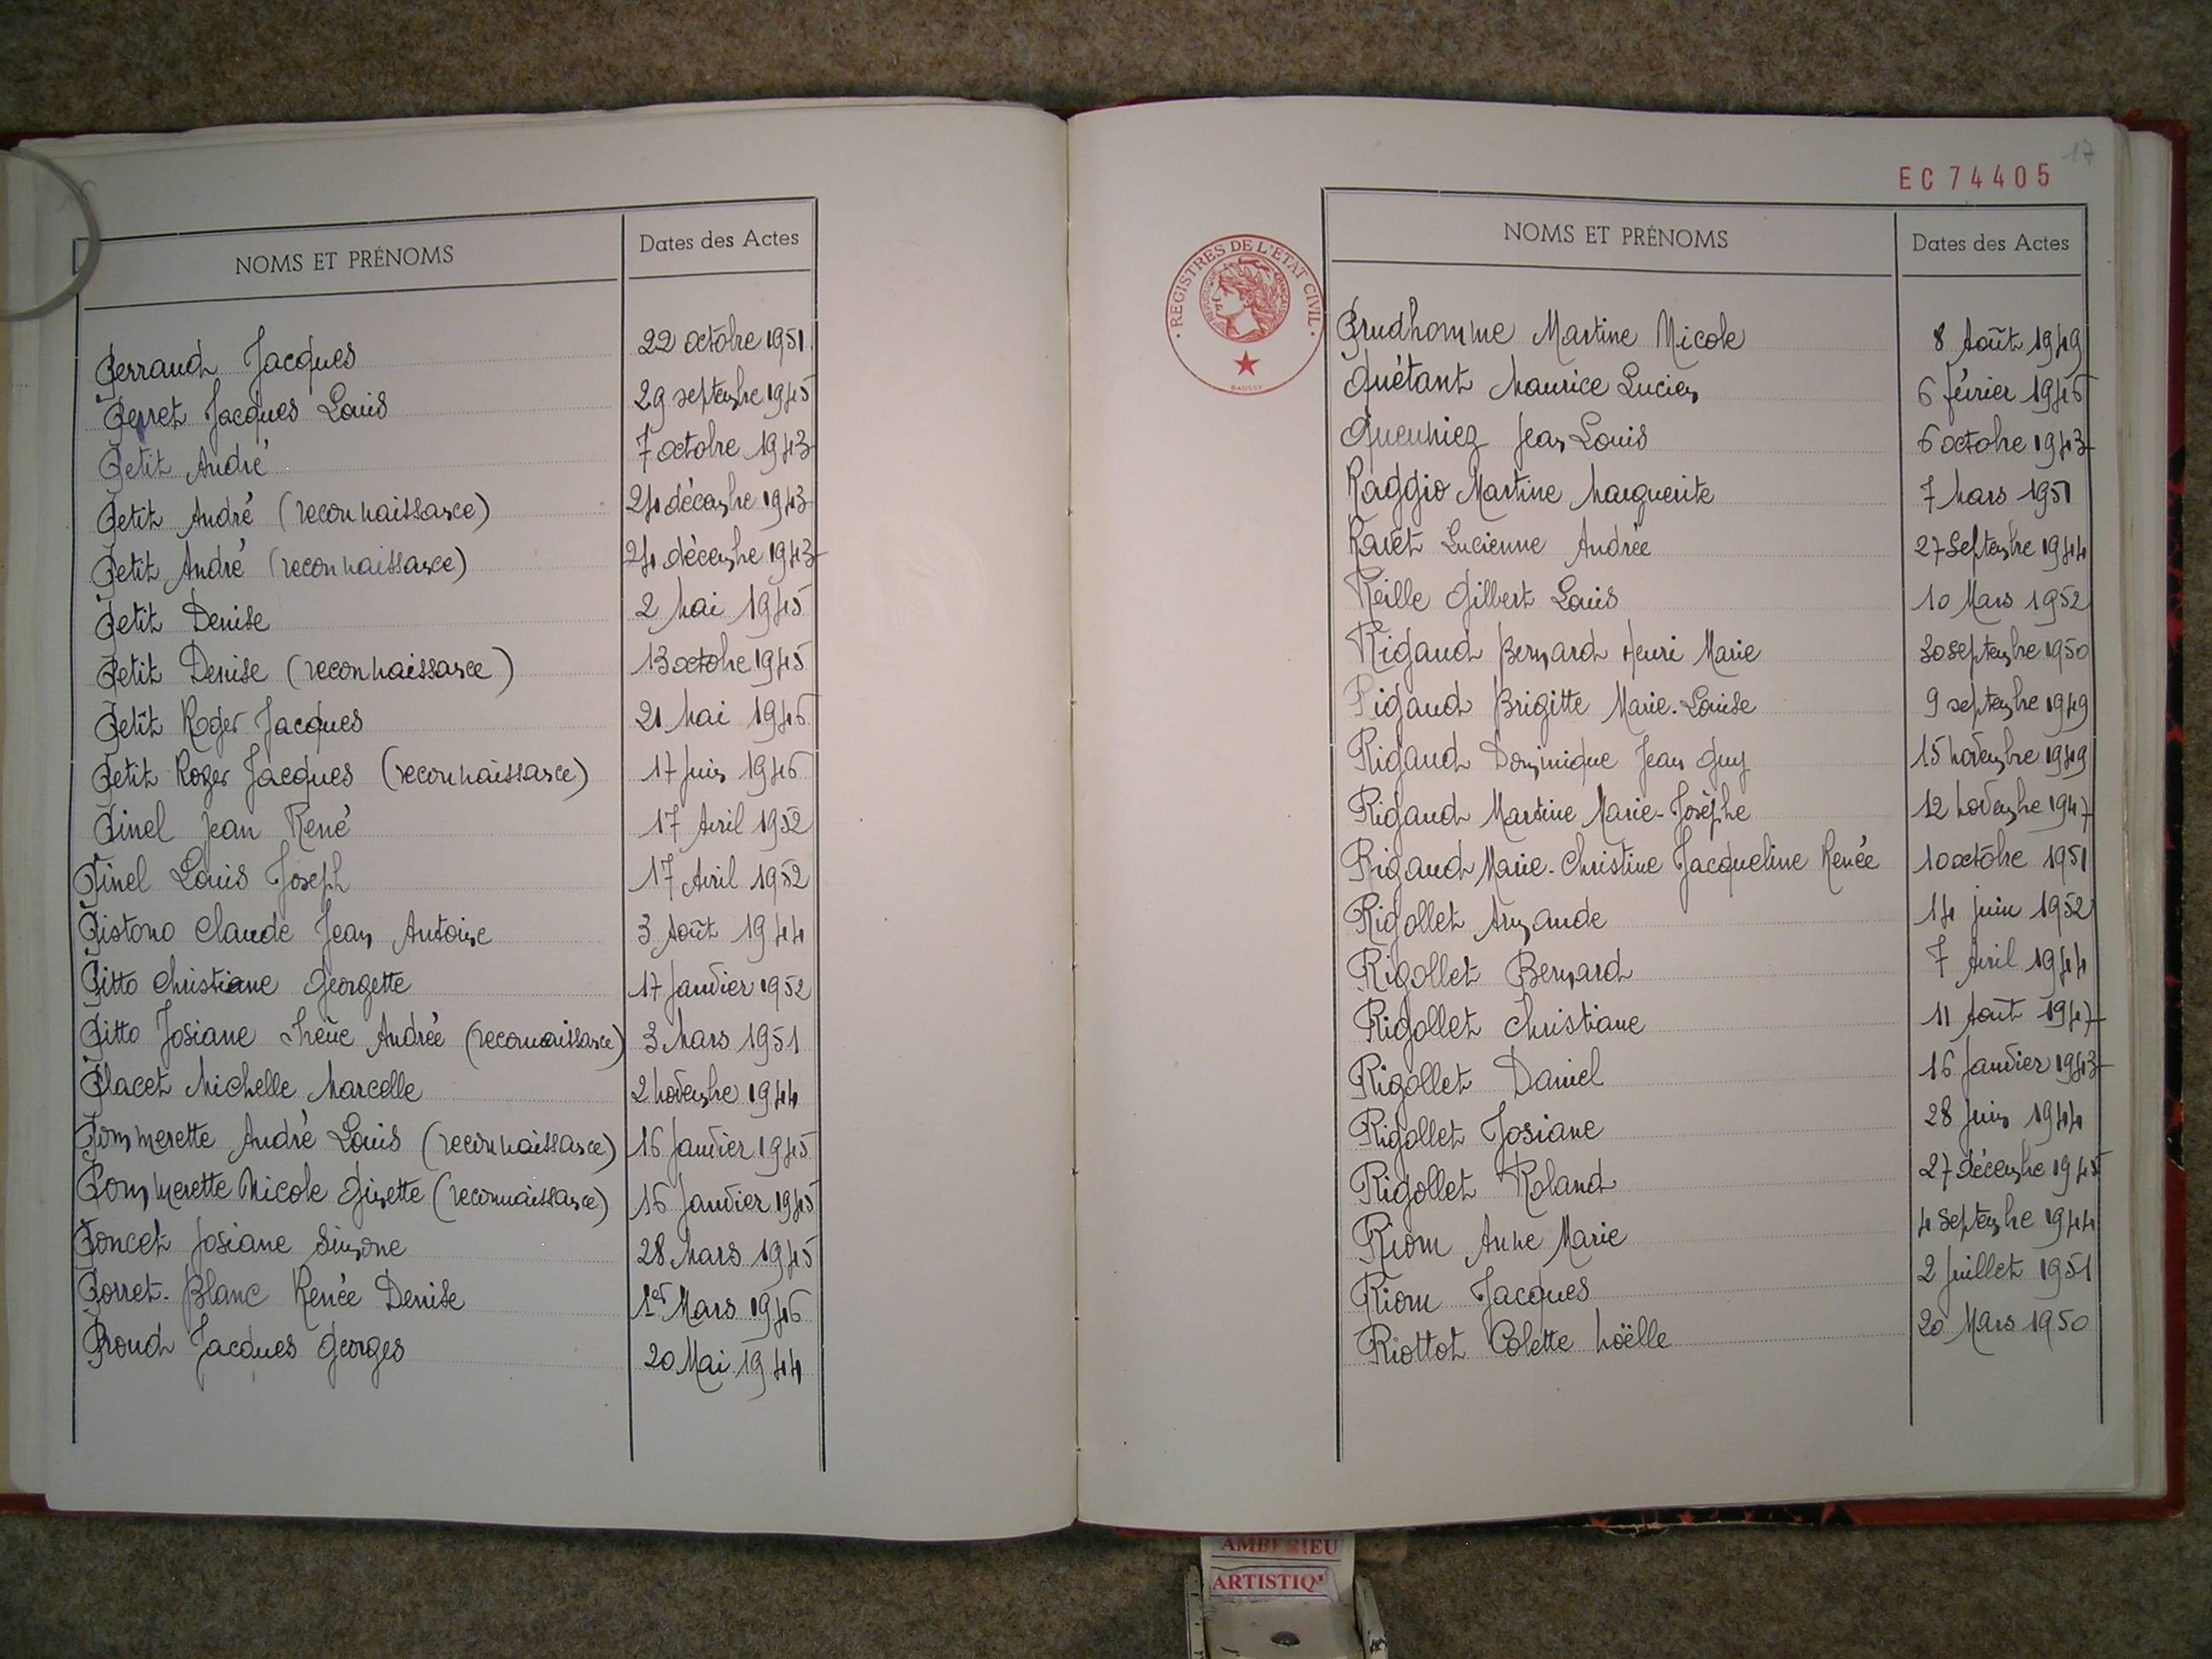 NOMS ET PRÉNOMS Dates des Actes
Perraud Jacques 22 octobre 1951
Perret Jacques Louis 29 septembre 1945
Petit André 7 octobre 1943
Petit André (reconnaissance) 24 décembre 1943
Petit André (reconnaissance) 24 décembre 1943
Petit Denise 2 Mai 1945
Petit Denise (reconnaissance) 13 octobre 1945
Petit Roger Jacques 21 Mai 1946
Petit Roger Jacques (reconnaissance) 17 Juin 1946
Pinel Jean René 17 Avril 1952
Pinel Louis Joseph 17 Avril 1952
Pistono Claude Jean Antoine 3 Août 1944
Pitto Christiane Georgette 17 Janvier 1952
Pitto Josiane Irène Andrée (reconnaissance) 3 Mars 1951
Placet Michelle Marcelle 2 Novembre 1944
Pommerette André Louis (reconnaissance) 16 Janvier 1945
Pommerette Nicole Ginette (reconnaissance) 16 Janvier 1945
Poncet Josiane Simone 28 Mars 1945
Porret-Blanc Renée Denise 1er Mars 1946
Proud Jacques Georges 20 Mai 1944
17
EC 74405
REGISTRES DE L'ETAT CIVIL
NOMS ET PRÉNOMS Dates des Actes
Prudhomme Martine Nicole 8 Août 1949
Quétant Maurice Lucien 6 février 1946
Queuniez Jean Louis 6 octobre 1943
Raggio Martine Marguerite 7 Mars 1951
Ravet Lucienne Andrée 27 Septembre 1944
Reille Gilbert Louis 10 Mars 1952
Rigaud Bernard Henri Marie 30 septembre 1950
Rigaud Brigitte Marie-Louise 9 septembre 1949
Rigaud Dominique Jean Guy 15 Novembre 1949
Rigaud Martine Marie-Josèphe 12 Novembre 1947
Rigaud Marie-Christine Jacqueline Renée 10 octobre 1951
Rigollet Armande 14 juin 1952
Rigollet Bernard 7 Avril 1944
Rigollet Christiane 11 Août 1947
Rigollet Daniel 16 Janvier 1943
Rigollet Josiane 28 Juin 1944
Rigollet Roland 27 décembre 1945
Riom Anne Marie 4 Septembre 1944
Riom Jacques 2 Juillet 1951
Riottot Colette Noëlle 20 Mars 1950
AMBERIEU
ARTISTIQ